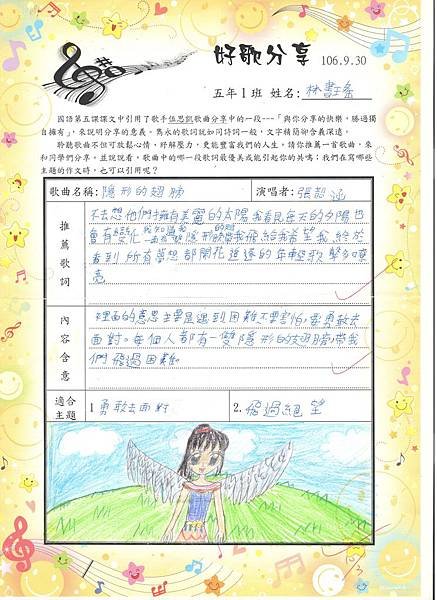 好歌分享 106.9.30
五年1班 姓名: 林書瑤
國語第五課課文中引用了歌手伍思凱歌曲分享中的一段---「與你分享的快樂，勝過獨
自擁有」，來說明分享的意義。雋永的歌詞就如同詩詞一般，文字精簡卻含義深遠。
聆聽歌曲不但可放鬆心情、紓解壓力，更能豐富我們的人生。請你推薦一首歌曲，來
和同學們分享，並說說看，歌曲中的哪一段歌詞最優美或能引起你的共鳴；我們在寫哪些
主題的作文時，也可以引用呢？
歌曲名稱: 隱形的翅膀 演唱者: 張韶涵
推薦歌詞
不去想他們擁有美麗的太陽 我看見每天的夕陽也
會有變化 我知道我一直有雙隱形的翅膀帶我飛給我希望我終於
看到 所有夢想都開花 追逐的年輕歌聲多嘹
亮
內容含意
裡面的意思主要是遇到困難不要害怕，要勇敢去
面對。每個人都有一雙隱形的翅膀帶我
們飛過困難
適合主題
1 勇敢去面對 2. 飛過絕望
10/3